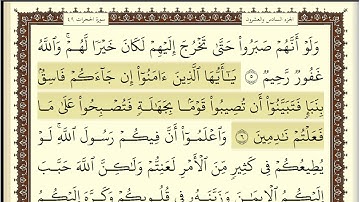 الجزء السادس والعشرون سورة الحجرات ٤٩
وَلَوْ أَنَّهُمْ صَبَرُوا۟ حَتَّىٰ تَخْرُجَ إِلَيْهِمْ لَكَانَ خَيْرًا لَّهُمْ ۚ وَٱللَّهُ
غَفُورٌ رَّحِيمٌ ٥ يَـٰٓأَيُّهَا ٱلَّذِينَ ءَامَنُوٓا۟ إِن جَآءَكُمْ فَاسِقٌۢ
بِنَبَإٍ فَتَبَيَّنُوٓا۟ أَن تُصِيبُوا۟ قَوْمًۢا بِجَهَـٰلَةٍ فَتُصْبِحُوا۟ عَلَىٰ مَا
فَعَلْتُمْ نَـٰدِمِينَ ٦ وَٱعْلَمُوٓا۟ أَنَّ فِيكُمْ رَسُولَ ٱللَّهِ ۚ لَوْ
يُطِيعُكُمْ فِى كَثِيرٍ مِّنَ ٱلْأَمْرِ لَعَنِتُّمْ وَلَـٰكِنَّ ٱللَّهَ حَبَّبَ
إِلَيْكُمُ ٱلْإِيمَـٰنَ وَزَيَّنَهُۥ فِى قُلُوبِكُمْ وَكَرَّهَ إِلَيْكُمُ